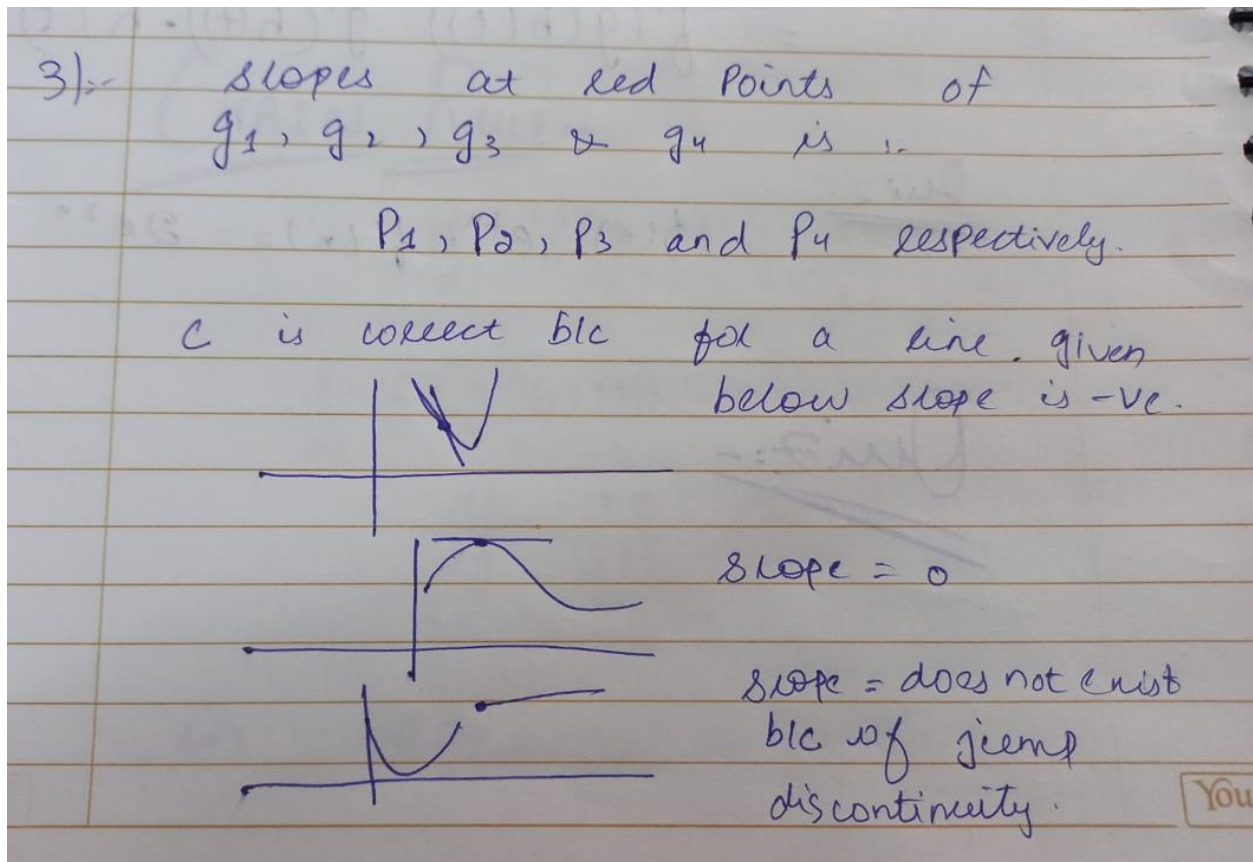 3):- slopes at red Points of
g1, g2, g3 & g4 is :-
P1, P2, P3 and P4 respectively.
C is correct b/c for a line. given
below slope is -ve.
slope = 0
slope = does not exist
b/c of jump
discontinuity.
You